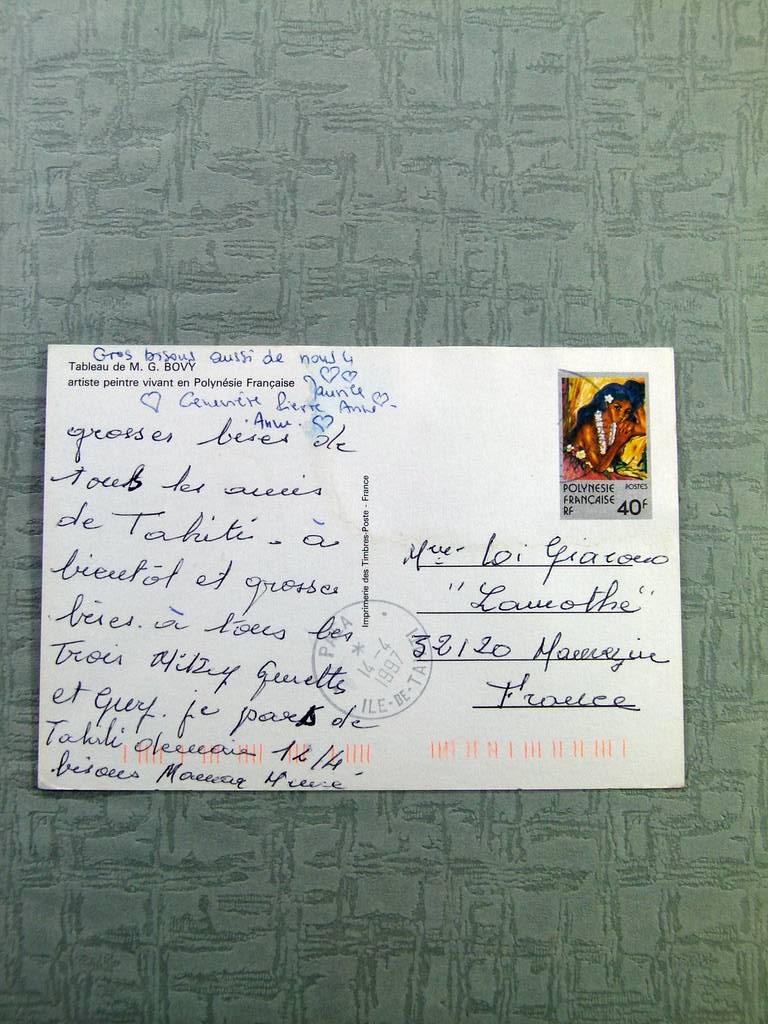 Gros bisous aussi de nous 4
Tableau de M. G. BOVY
artiste peintre vivant en Polynésie Française
Maurice
Geneviève Pierre Anne-
Anne.
grosses bises de
tous les amis
de Tahiti - à
bientôt et grosses
bises à tous les
trois Mitzy Guenette
et Guy. je pars de
Tahiti demain 12/4
bisous Maman
Imprimerie des Timbres-Poste - France
POLYNESIE POSTES
FRANÇAISE
RF 40F
PAPARA
*
14-4
1997
ILE-DE-TAHITI
Mme Loi
"Lamothe"
32120 Mauvezin
France